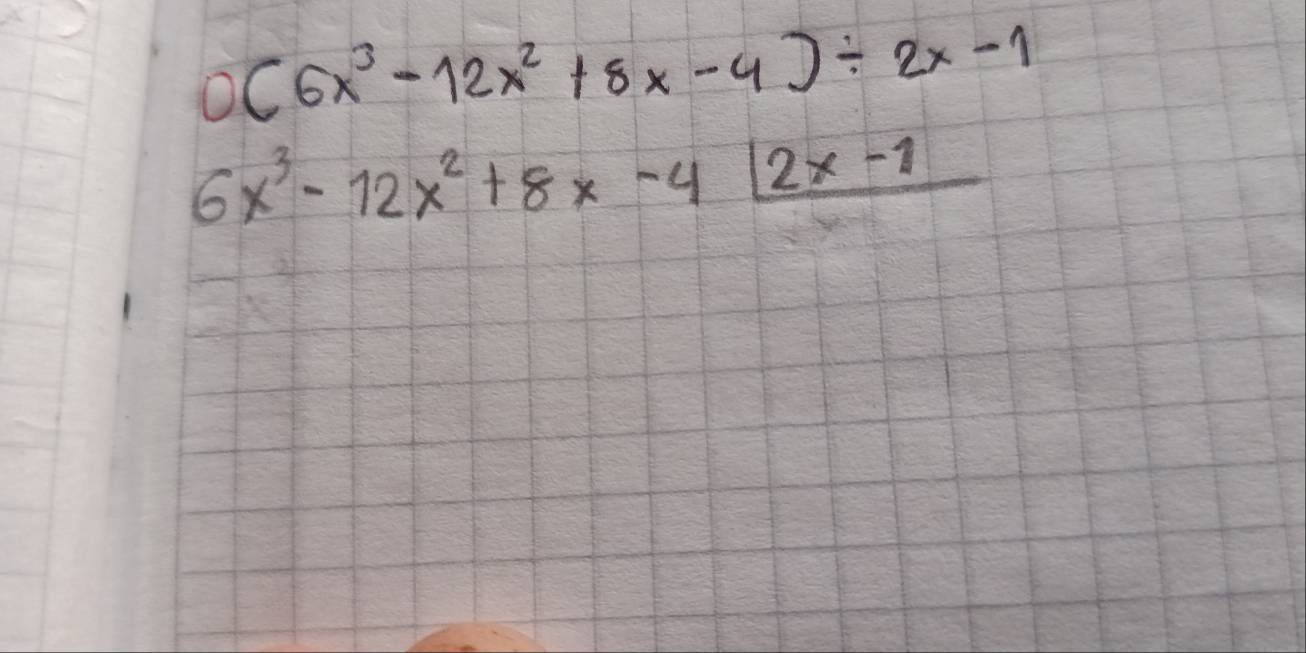 (6x³ - 12x² + 8x - 4) ÷ 2x - 1
6x³ - 12x² + 8x - 4 |2x - 1